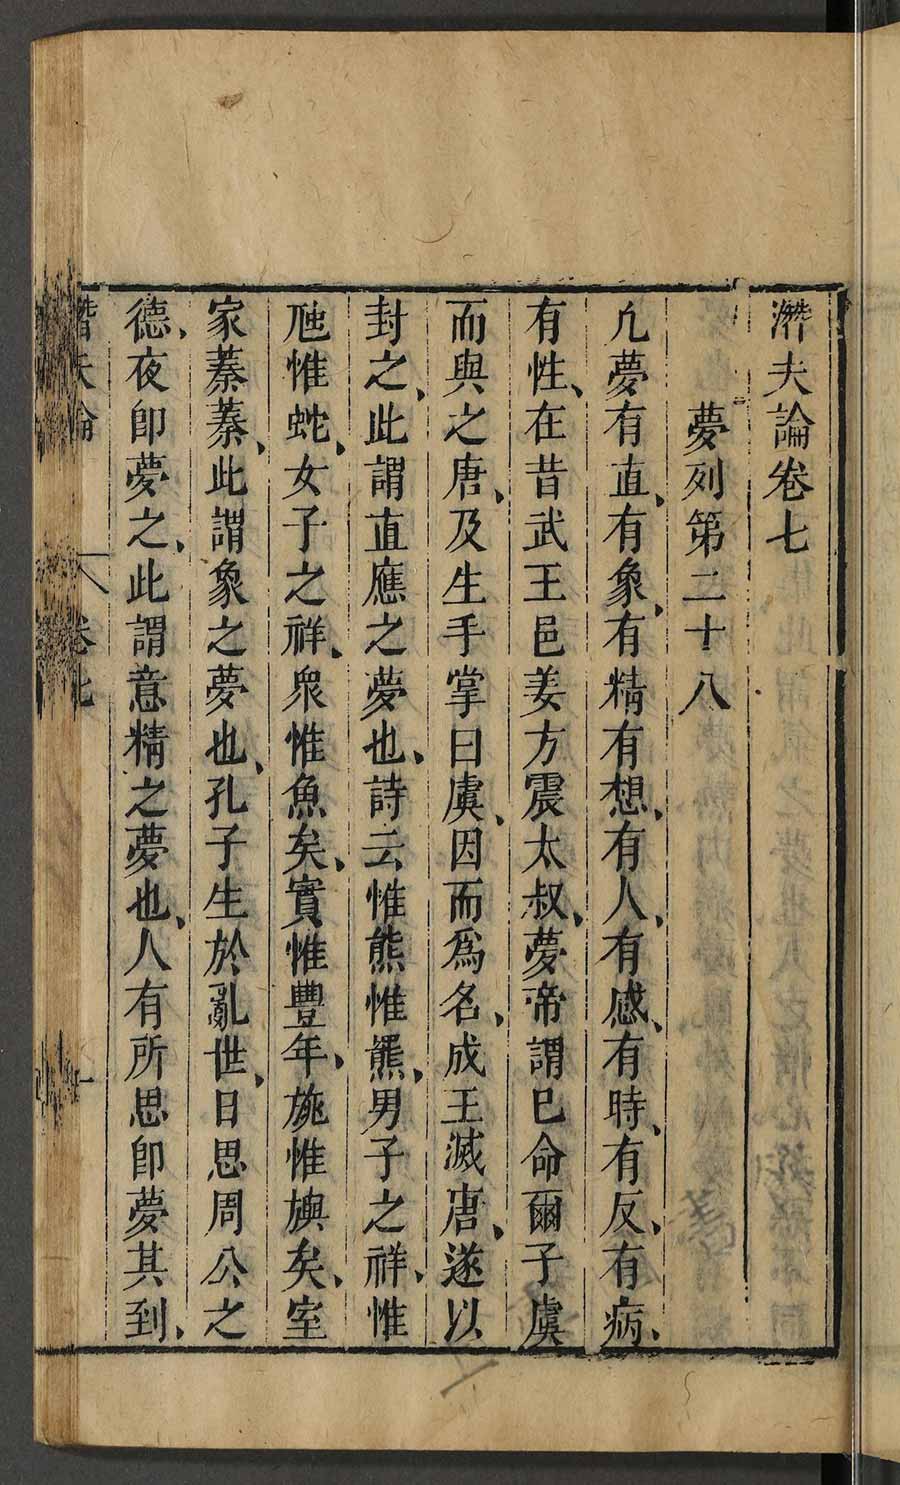 潛夫論卷七
夢列第二十八
凢夢有直、有象、有精有想、有人、有感、有時、有反、有病、
有性、在昔武王邑姜方震太叔、夢帝謂已命爾子虞
而與之唐、及生手掌曰虞、因而爲名、成王滅唐、遂以
封之、此謂直應之夢也、詩云惟熊惟羆、男子之祥、惟
虺惟蛇、女子之祥、衆惟魚矣、實惟豐年、旐惟旟矣、室
家蓁蓁、此謂象之夢也、孔子生於亂世、日思周公之
德、夜卽夢之、此謂意精之夢也、人有所思卽夢其到、
潛夫論 卷七 一